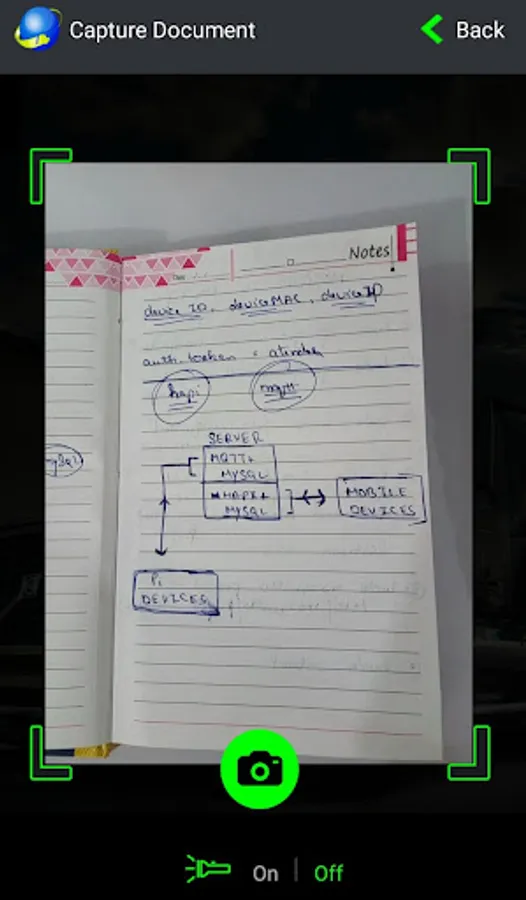 Capture Document
Back
Notes
device ID, device MAC, device IP
auth. token =
hapi
mqtt
SERVER
MQTT+
MYSQL
HAPI+
MYSQL
MOBILE
DEVICES
MySQL
Pi
DEVICES
On | Off